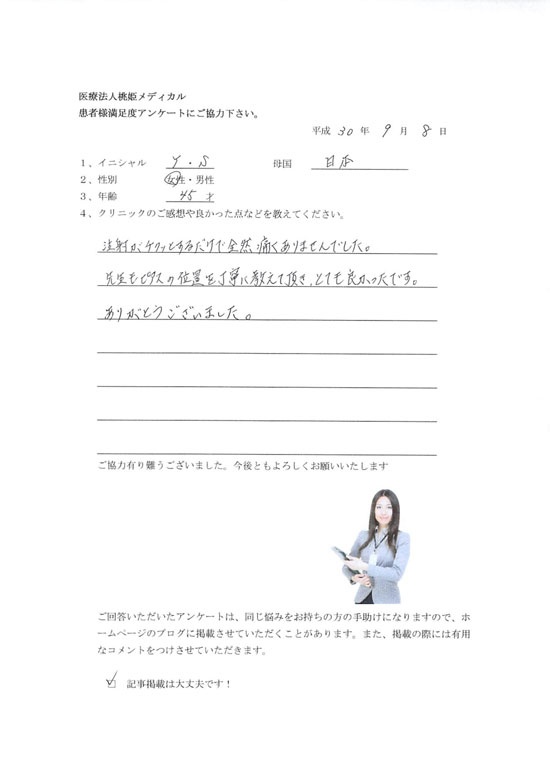 医療法人桃姫メディカル
患者様満足度アンケートにご協力下さい。
平成 30 年 9 月 8 日
1、イニシャル Y・S 母国 日本
2、性別 女性・男性
3、年齢 45才
4、クリニックのご感想や良かった点などを教えてください。
注射がチクッとするだけで全然痛くありませんでした。
先生もピアスの位置を丁寧に教えて頂き、とても良かったです。
ありがとうございました。
ご協力有り難うございました。今後ともよろしくお願いいたします
ご回答いただいたアンケートは、同じ悩みをお持ちの方の手助けになりますので、ホ
ームページのブログに掲載させていただくことがあります。また、掲載の際には有用
なコメントをつけさせていただきます。
☑ 記事掲載は大丈夫です！